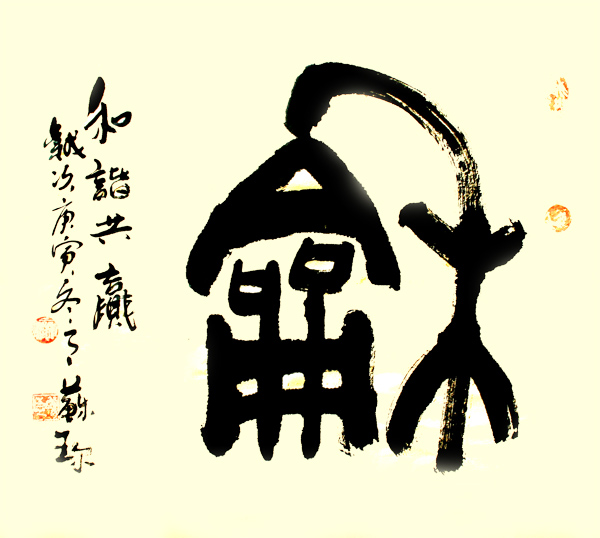 龢
和諧共贏
歲次庚寅冬月蘇珎